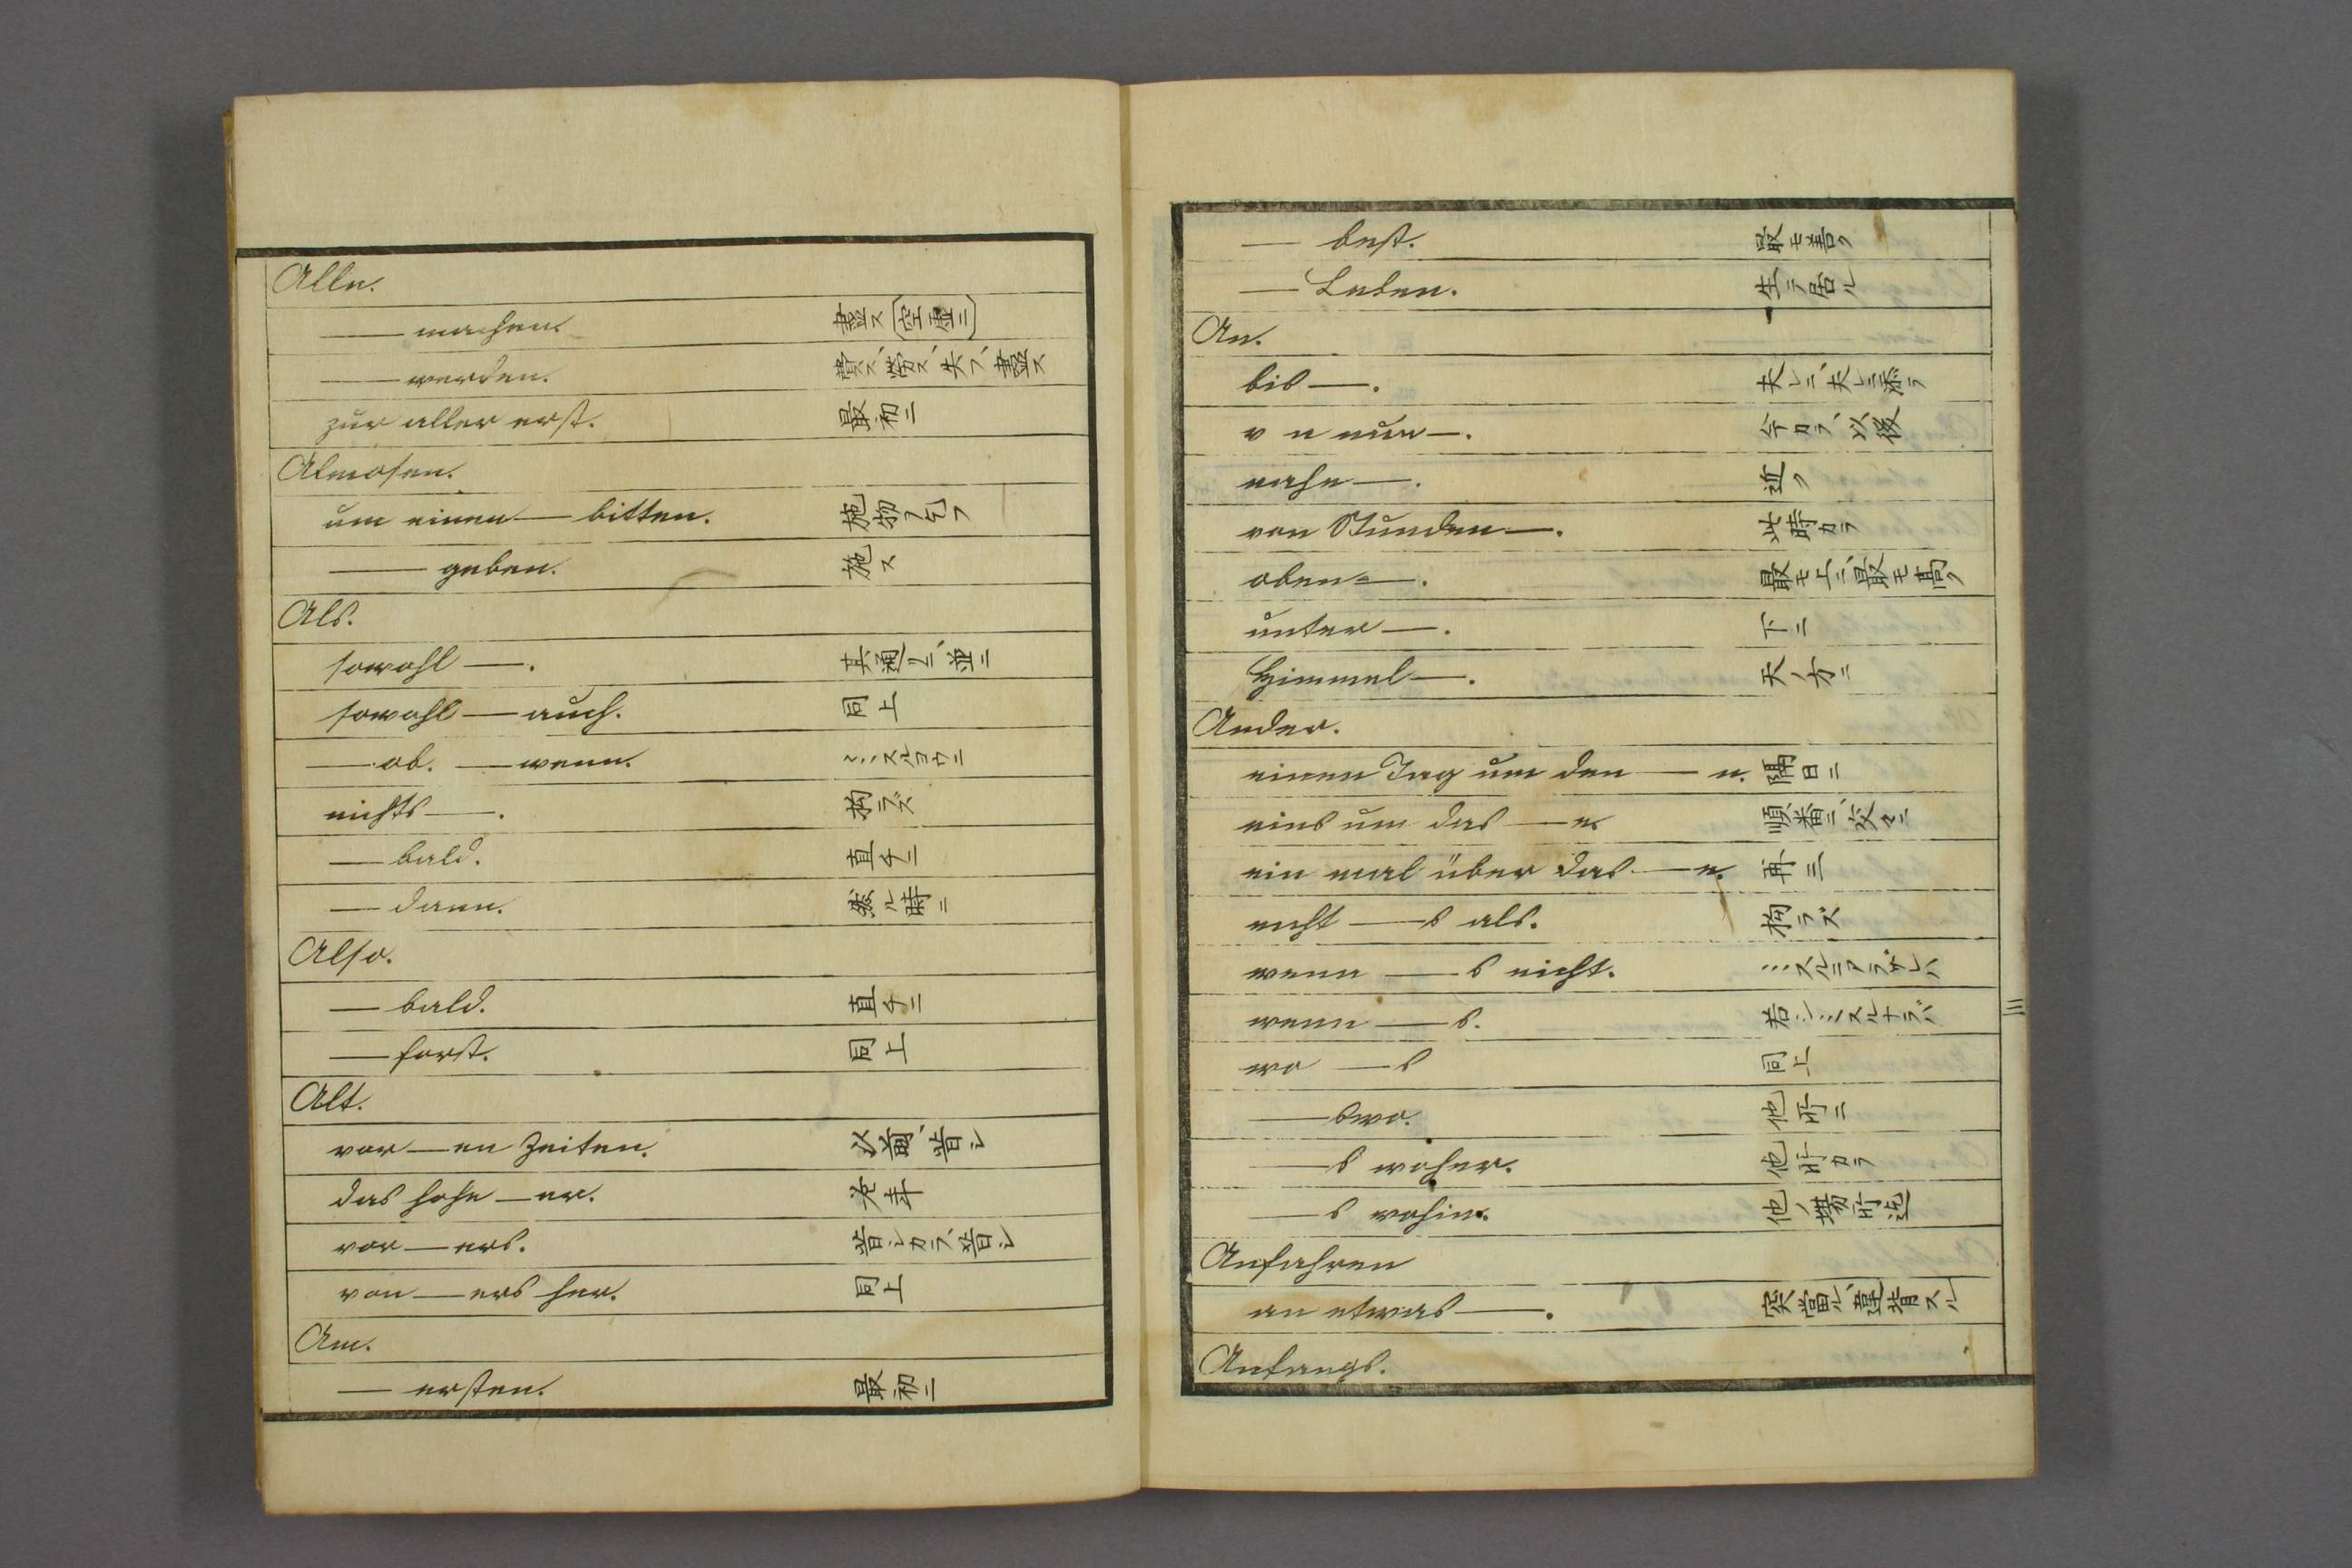 Alle.
— machen. 盡ス(空虚ニ)
— werden. 費ス、労ス、失フ、盡ス
zur aller erst. 最初ニ
Almosen.
um einen — bitten. 施物ヲ乞フ
— geben. 施ス
Als.
sowohl —. 其通リニ、並ニ
sowohl — auch. 同上
— ob. — wenn. ・・・スルヨウニ
nichts —. 拘ラズ
— bald. 直チニ
— dann. 然ル時ニ
Also.
— bald. 直チニ
— fort. 同上
Alt.
vor — en Zeiten. 以前、昔シ
das hohe — er. 老年
vor — ers. 昔シカラ、昔シ
von — ers her. 同上
Am.
— ersten. 最初ニ
— best. 最モ善ク
— Leben. 生テ居ル
An.
bis —. 夫レニ、夫レニ添テ
v n nun —. 今カラ、以後
nahe —. 近ク
von Stunden —. 此時カラ
oben —. 最モ上ニ、最モ高ク
unter —. 下ニ
Himmel —. 天ノ方ニ
Ander.
einen Tag um den — n. 隔日ニ
eins um das — e. 順番ニ、交々ニ
ein mal über das — e. 再三
nicht — s als. 拘ラズ
wenn — s nicht. ・・・スルニアラザレバ
wenn — s. 若シ・・・スルナラバ
wo — s 同上
— swo. 他所ニ
— s woher. 他所カラ
— s wohin. 他ノ場所迄
三
Anfahren
an etwas —. 突當ル、撞着スル
Anfangs.